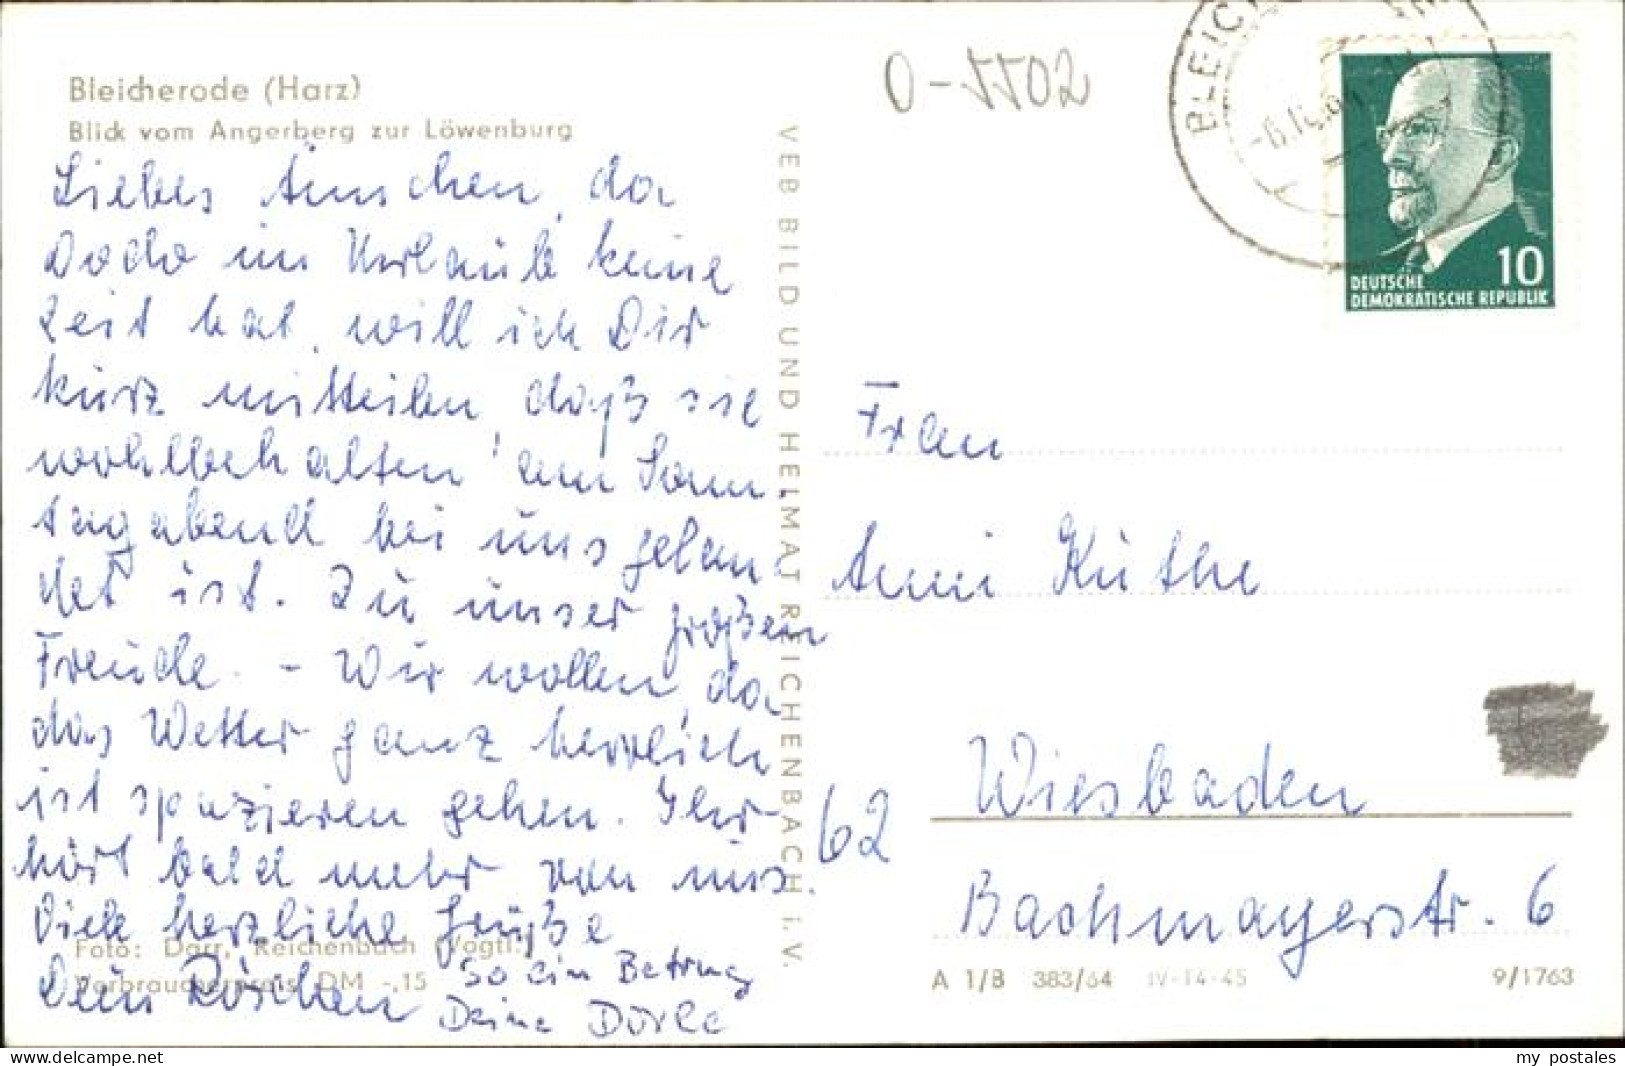 Bleicherode (Harz)
Blick vom Angerberg zur Löwenburg
Liebes Ännchen, da
Dodo im Urlaub keine
Zeit hat, will ich Dir
kurz mitteilen, daß sie
wohlbehalten am Sonn-
tagabend bei uns gelan-
det ist. Zu unser großen
Freude. - Wir wollen, da
das Wetter ganz herrlich
ist spazieren gehen. Ihr
hört bald mehr von uns.
Viele herzliche Grüße
Dein Röschen
So ein Betrug
Deine Dörle
Foto: Darr, Reichenbach (Vogtl.)
Verbraucherpreis DM -,15
VEB BILD UND HEIMAT REICHENBACH i. V.
0-5502
BLEICH
DEUTSCHE
DEMOKRATISCHE REPUBLIK
10
Frau
Anni Küthe
62 Wiesbaden
Bachmayerstr. 6
A 1/B 383/64 IV-14-45 9/1763
my postales
www.delcampe.net